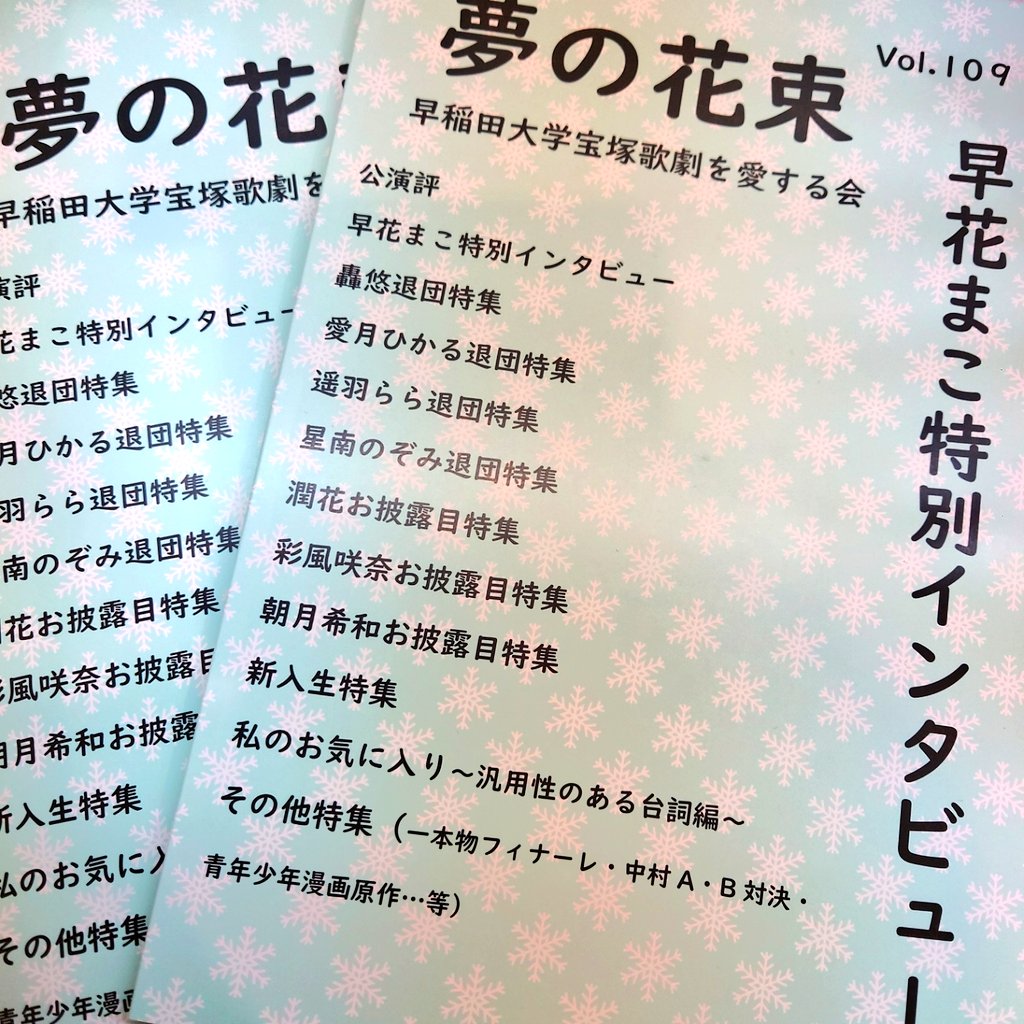 夢の花束
Vol.109
早稲田大学宝塚歌劇を愛する会
公演評
早花まこ特別インタビュー
轟悠退団特集
愛月ひかる退団特集
遥羽らら退団特集
星南のぞみ退団特集
潤花お披露目特集
彩風咲奈お披露目特集
朝月希和お披露目特集
新入生特集
私のお気に入り～汎用性のある台詞編～
その他特集（一本物フィナーレ・中村A・B対決・
青年少年漫画原作…等）
早花まこ特別インタビュー
夢の花
早稲田大学宝塚歌劇を
演評
花まこ特別インタビュー
悠退団特集
月ひかる退団特集
羽らら退団特集
南のぞみ退団特集
花お披露目特集
彩風咲奈お披露目
月希和お披露
新入生特集
私のお気に入
その他特集
青年少年漫画